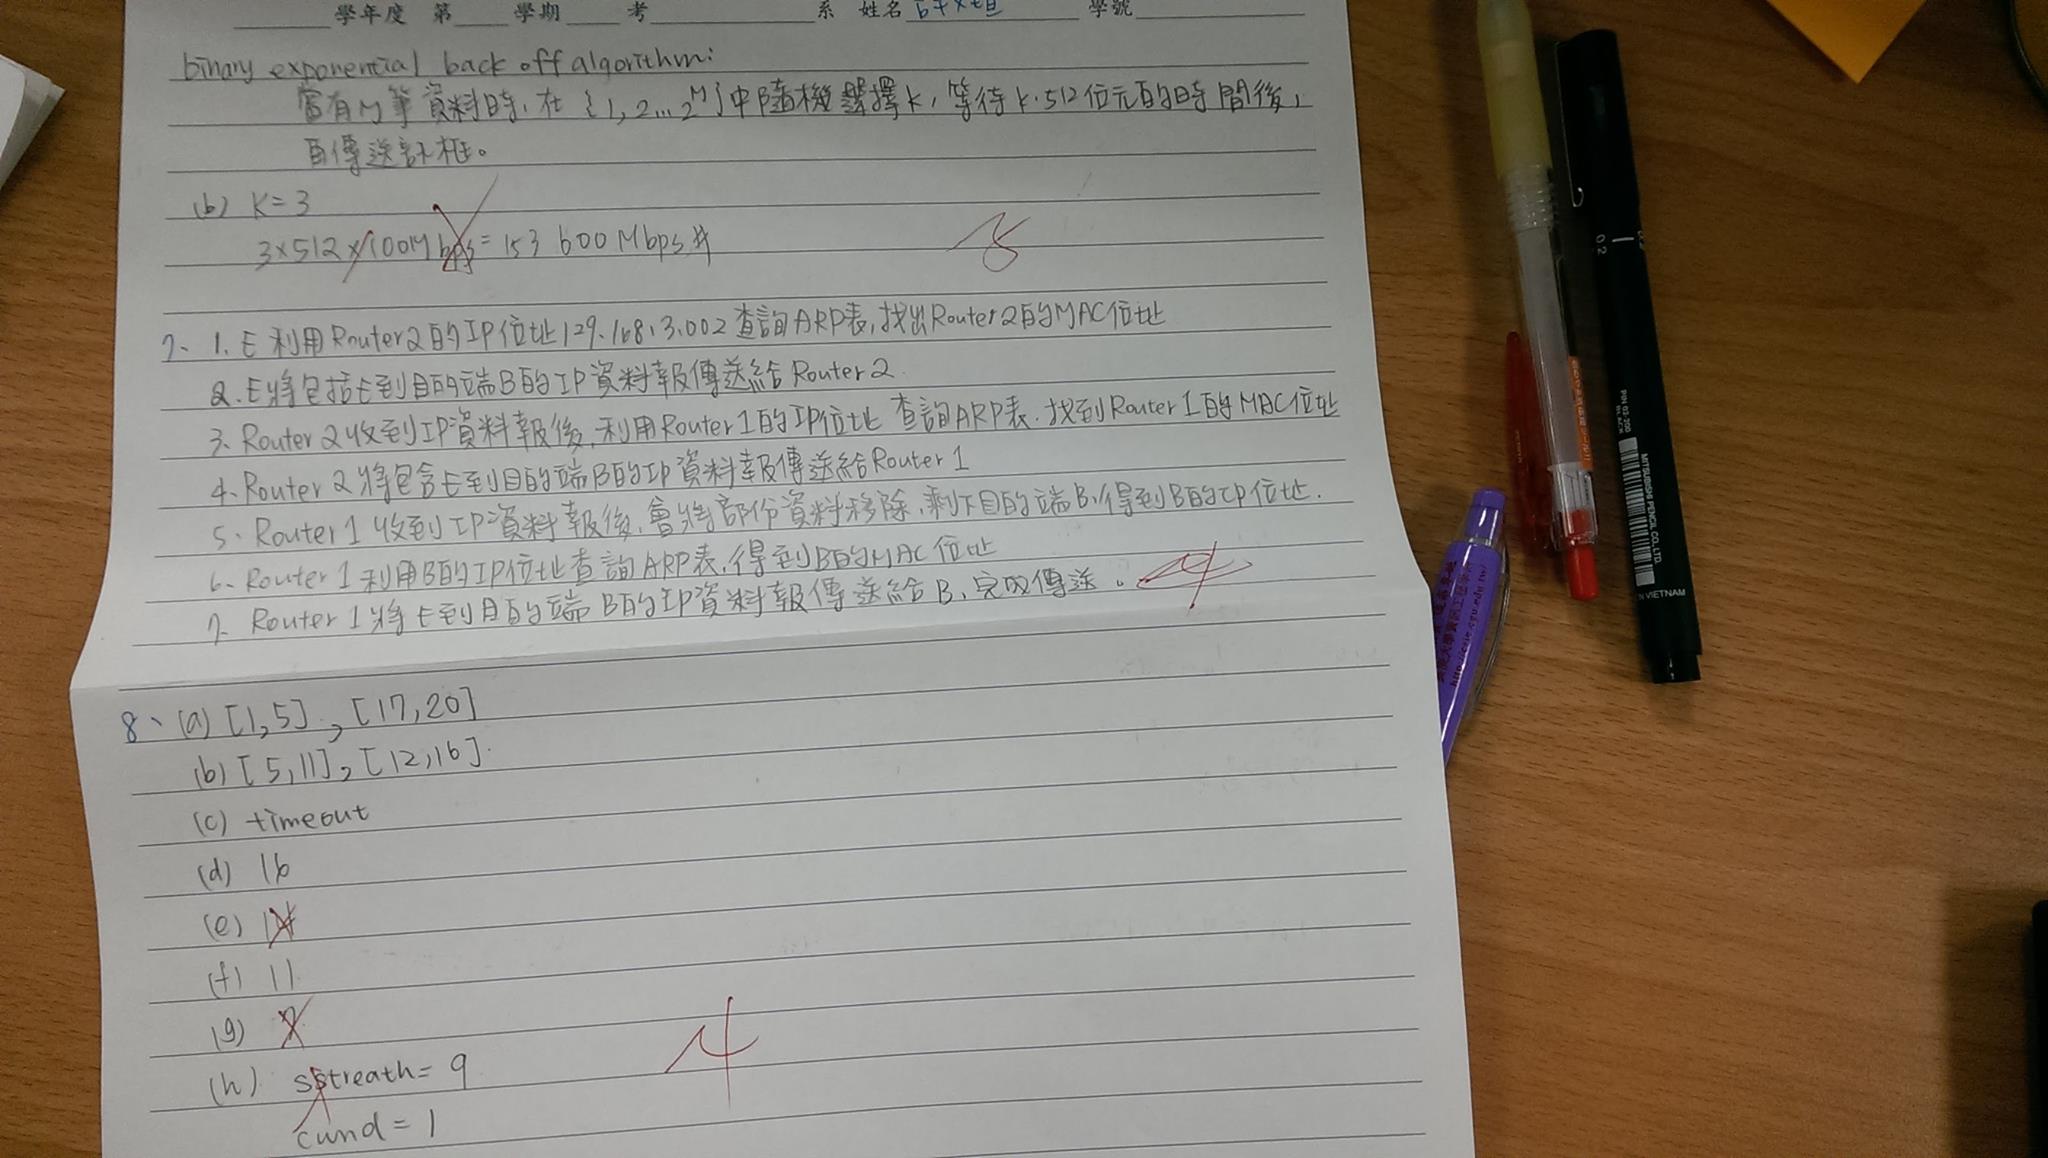 學年度 第 學期 考 系 姓名 學號
binary exponential back off algorithm:
當有M筆資料時,在{1,2...2^M}中隨機選擇k,等待k·512位元的時間後,
再傳送訊框。
(b) K=3
3×512×100Mbps=153600Mbps#
8
7、1、E利用Router2的IP位址129.168.3.002查詢ARP表,找出Router2的MAC位址
2.E將包括E到目的端B的IP資料報傳送給Router2.
3、Router2收到IP資料報後,利用Router1的IP位址查詢ARP表.找到Router1的MAC位址
4、Router2將包含E到目的端B的IP資料報傳送給Router1
5、Router1收到IP資料報後,會將部份資料移除,剩下目的端B,得到B的IP位址.
6、Router1利用B的IP位址查詢ARP表,得到B的MAC位址
7、Router1將E到目的端B的IP資料報傳送給B,完成傳送.
4
8、(a)[1,5],[17,20]
(b)[5,11],[12,16].
(c) timeout
(d) 16
(e) 14
(f) 11
(g) 7
(h) sstreath=9
cwnd=1
4
PIN 02-200
BLACK
MITSUBISHI PENCIL CO., LTD.
IN VIETNAM
0.2